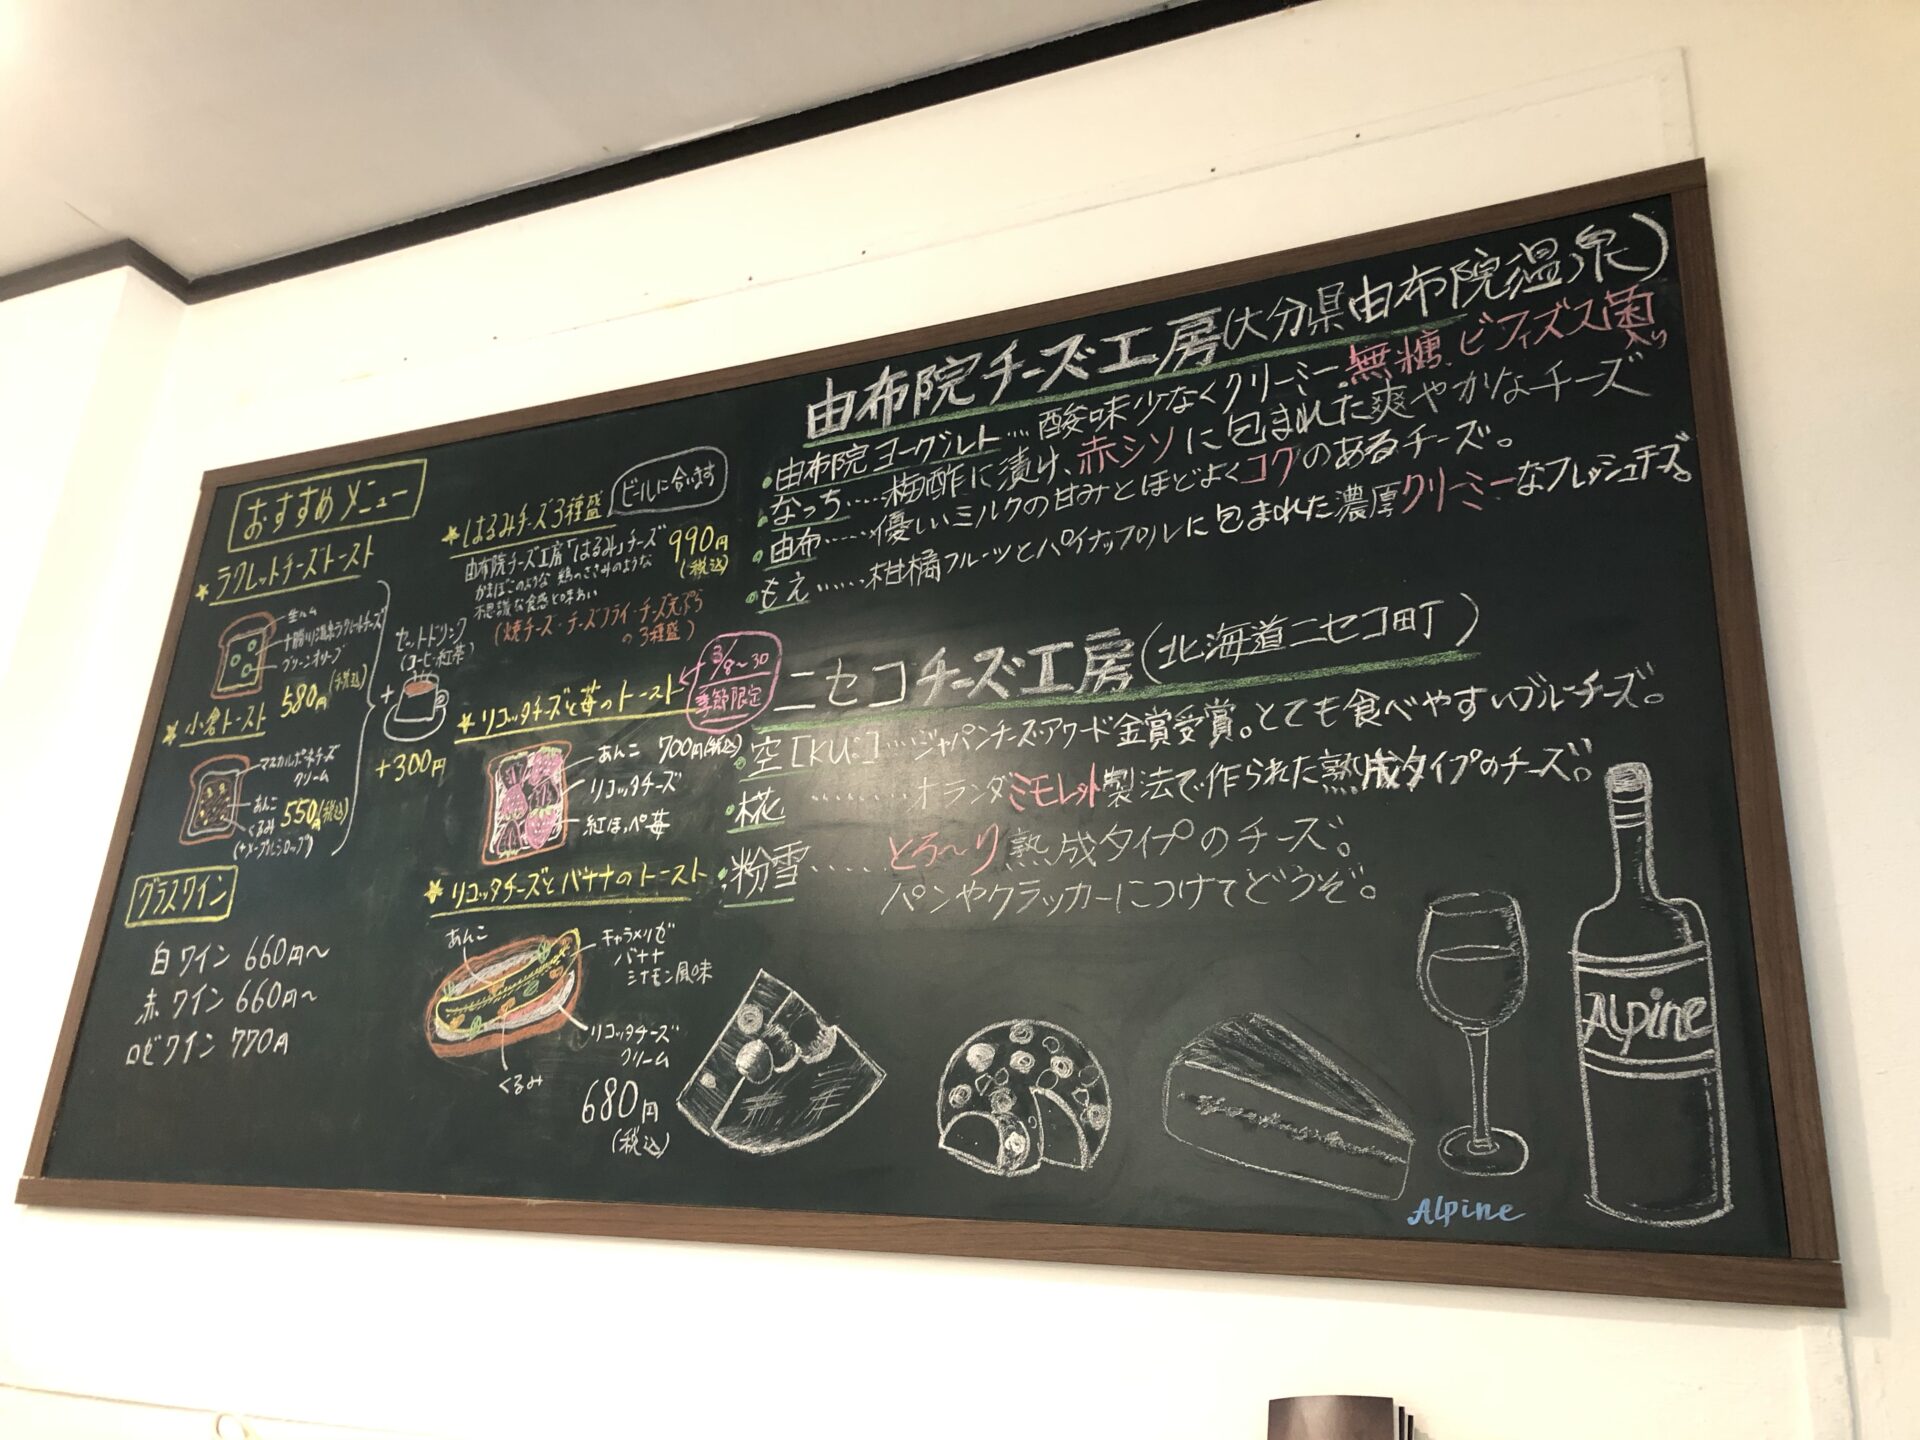 おすすめメニュー
★ラクレットチーズトースト
生ハム
十勝川温泉ラクレットチーズ
グリーンオリーブ
580円(税込)
★小倉トースト
マスカルポネチーズ
クリーム
あんこ
くるみ
(+メープルシロップ)
550円(税込)
セットドリンク
(コーヒー・紅茶)
+
+300円
グラスワイン
白ワイン 660円～
赤ワイン 660円～
ロゼワイン 770円
★はるみチーズ3種盛
ビールに合います
由布院チーズ工房「はるみ」チーズ
かまぼこのような 鶏のささみのような
不思議な食感と味わい
990円
(税込)
(焼チーズ・チーズフライ・チーズ天ぷら
の3種盛)
★リコッタチーズと苺のトースト
3/8～30
季節限定
あんこ 700円(税込)
リコッタチーズ
紅ほっぺ苺
★リコッタチーズとバナナのトースト
あんこ
キャラメリゼ
バナナ
シナモン風味
リコッタチーズ
クリーム
くるみ
680円
(税込)
由布院チーズ工房(大分県由布院温泉)
・由布院ヨーグルト…酸味少なくクリーミー。無糖、ビフィズス菌入り
・なっち……梅酢に漬け、赤シソに包まれた爽やかなチーズ
・由布……優しいミルクの甘みとほどよくコクのあるチーズ。
・もえ……柑橘フルーツとパイナップルに包まれた濃厚クリーミーなフレッシュチーズ。
ニセコチーズ工房(北海道ニセコ町)
・空[KU:]…ジャパンチーズ・アワード金賞受賞。とても食べやすいブルーチーズ。
・椛………オランダミモレット製法で作られた熟成タイプのチーズ。
・粉雪……とろ～り熟成タイプのチーズ。
パンやクラッカーにつけてどうぞ。
Alpine
Alpine